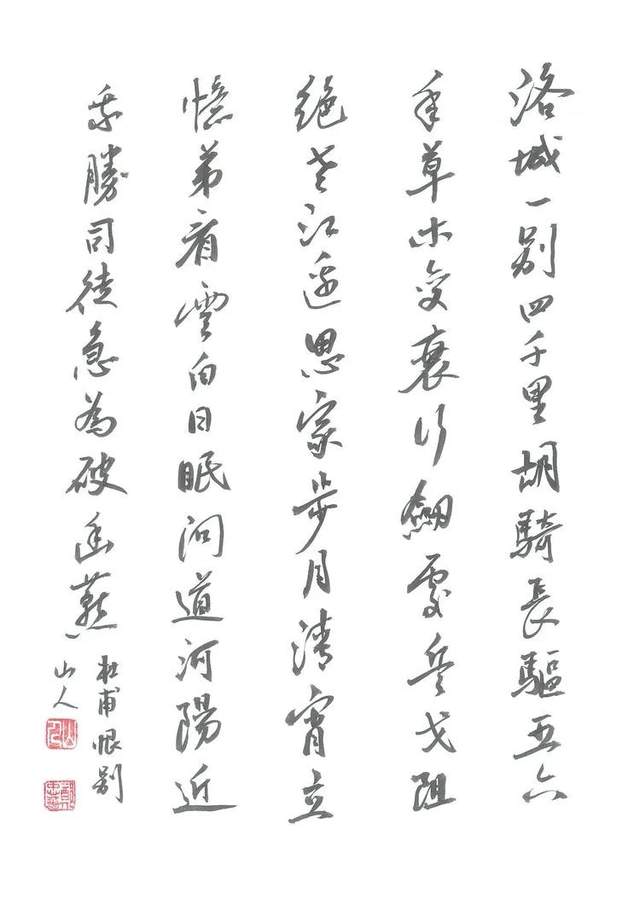 洛城一别四千里胡騎長驅五六
年草木變衰行劔處兵戈阻
絕老江邊思家步月清宵立
憶弟看雲白日眠问道河陽近
乘勝司徒急為破幽燕
杜甫恨别
山人
山人